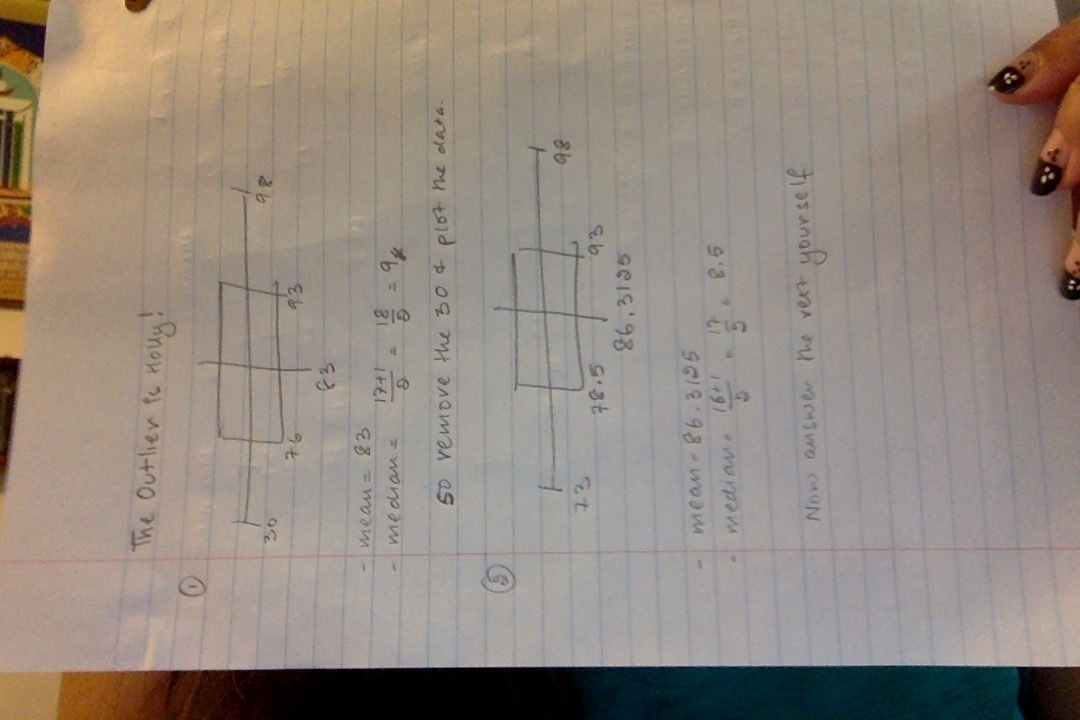 The Outlier is Holly!
①
30
76
83
93
98
- mean = 83
- median = 17+1/2 = 18/2 = 9
so remove the 30 & plot the data.
②
73
78.5
86.3125
93
98
- mean = 86.3125
- median = 16+1/2 = 17/2 = 8.5
Now answer the rest yourself